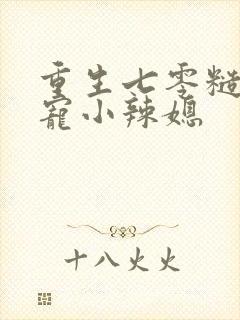 重生七零糙
宠小辣媳
十八火火